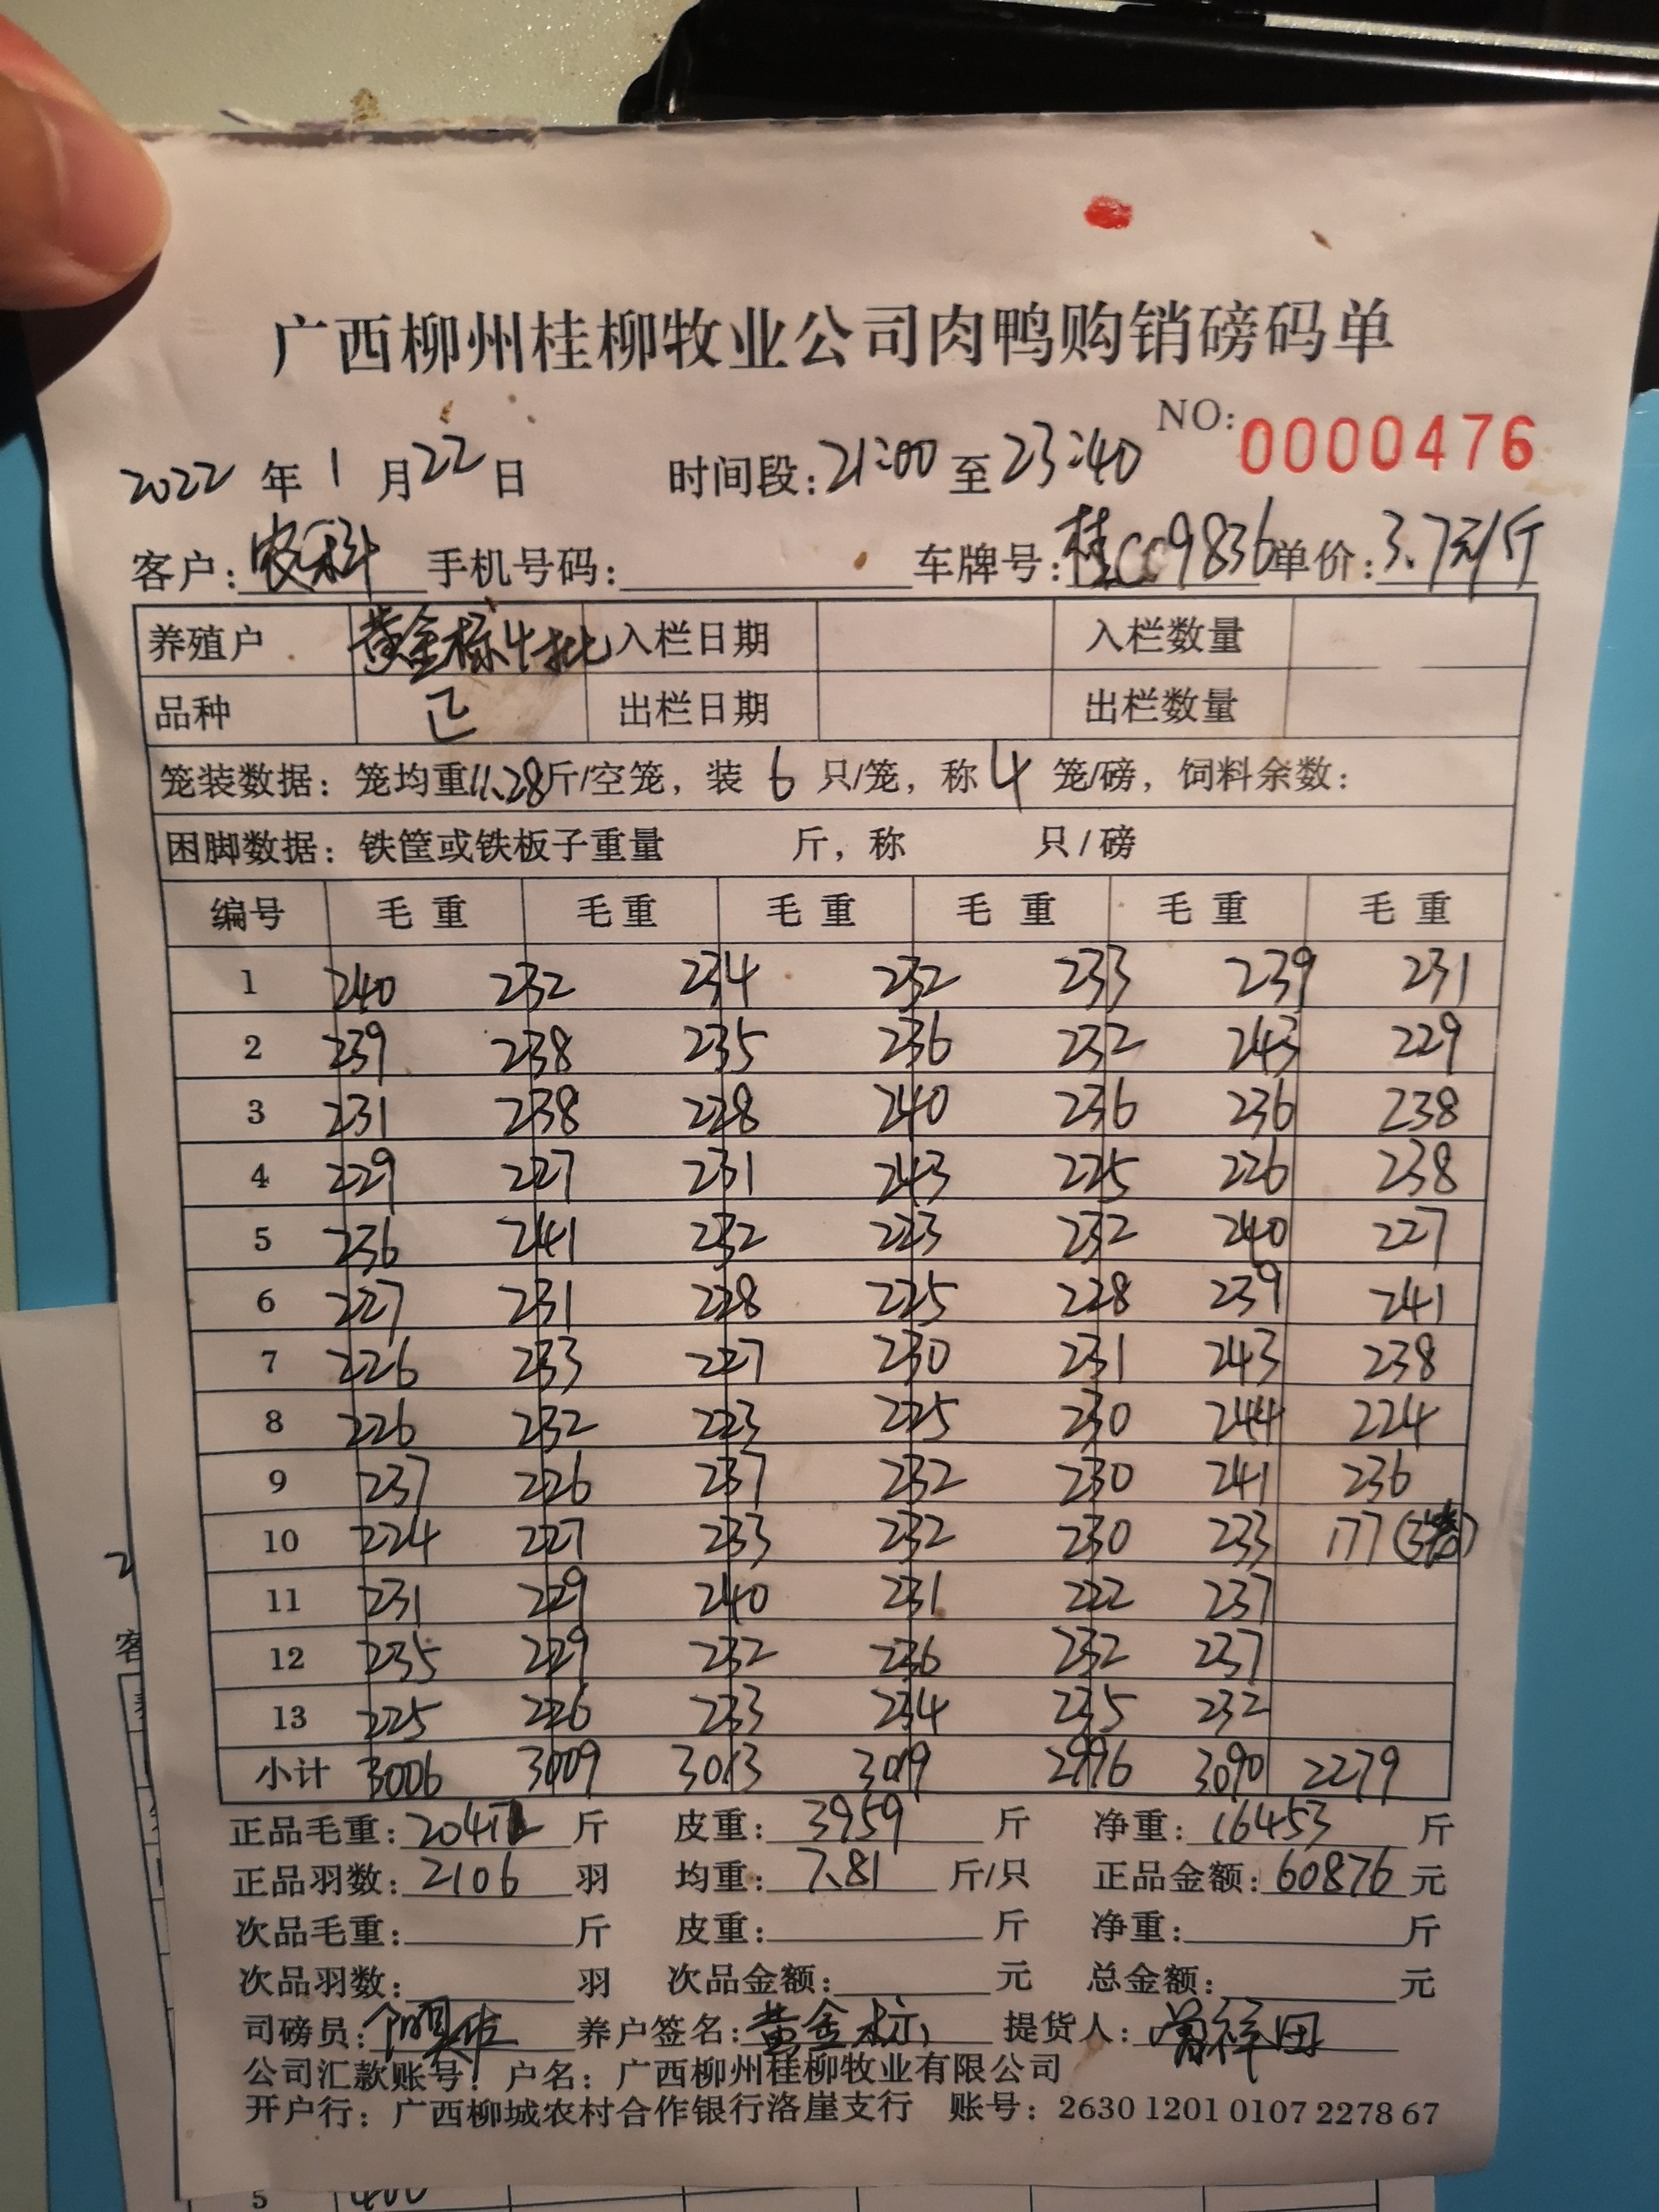 广西柳州桂柳牧业公司肉鸭购销磅码单
NO: 0000476
2022 年 1 月 22 日 时间段: 21:00 至 23:40
客户: 农科 手机号码: 车牌号: 桂CC9836 单价: 3.7元/斤
养殖户 黄金标4批 入栏日期 入栏数量
品种 乙 出栏日期 出栏数量
笼装数据: 笼均重11.28斤/空笼, 装 6 只/笼, 称 4 笼/磅, 饲料余数:
困脚数据: 铁筐或铁板子重量 斤, 称 只/磅
编号 毛重 毛重 毛重 毛重 毛重 毛重
1 240 232 234 232 233 239 231
2 239 238 235 236 232 243 229
3 231 238 228 240 236 236 238
4 229 227 231 243 225 226 238
5 236 241 232 223 232 240 227
6 227 231 228 225 228 239 241
7 226 233 227 230 231 243 238
8 226 232 223 225 230 244 224
9 237 226 237 232 230 241 236
10 224 227 233 232 230 233 177 (3笼)
11 231 229 240 231 222 237
12 235 229 232 236 232 237
13 225 226 233 234 235 232
小计 3006 3009 3013 3019 2996 3090 2279
正品毛重: 20412 斤 皮重: 3959 斤 净重: 16453 斤
正品羽数: 2106 羽 均重: 7.81 斤/只 正品金额: 60876 元
次品毛重: 斤 皮重: 斤 净重: 斤
次品羽数: 羽 次品金额: 元 总金额: 元
司磅员: 养户签名: 黄金标 提货人: 曾祥田
公司汇款账号: 户名: 广西柳州桂柳牧业有限公司
开户行: 广西柳城农村合作银行洛崖支行 账号: 2630 1201 0107 2278 67
客
5 400